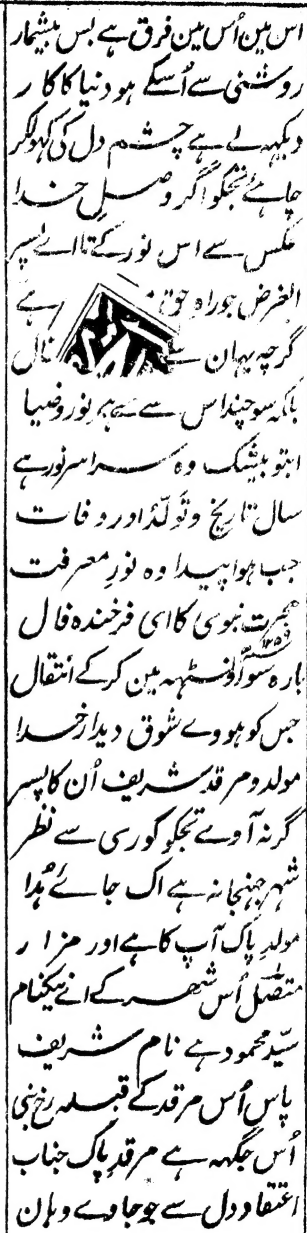 اس مین اُس مین فرق ہے بس بیشمار
روشنی سے اُسکے ہو دنیا کا کار
دیکھہ لے ہے چشم دل کی کھولکر
چاہئے تجکو اگر وصل خدا
عکس سے اس نور کے تا اے پسر
الغرض جو راہ حق ہے
گرچہ یہان سے
بلکہ سو چند اس سے ہے نور و ضیا
ابتو بیشک وہ سراسر نور ہے
سال تاریخ و تولّد اور وفات
جب ہوا پیدا وہ نورِ معرفت
ہجرت نبوی کا ای فرخندہ فال
بارہ سو اونسٹہہ مین کر کے انتقال
۱۲۵۹
جس کو ہووے شوق دیدارِ خدا
مولد و مرقد شریف اُن کا پسر
گر نہ آوے تجکو کوری سے نظر
شہر جہنجانہ ہے اک جائے ہُدا
مولدِ پاک آپ کا ہے اور مزار
متصل اُس شہر کے اے نیکنام
سیّد محمود ہے نام شریف
پاس اُس مرقد کے قبلہ رخ بنی
اُس جگہہ ہے مرقدِ پاک جناب
اعتقاد دل سے جو جاوے وہان